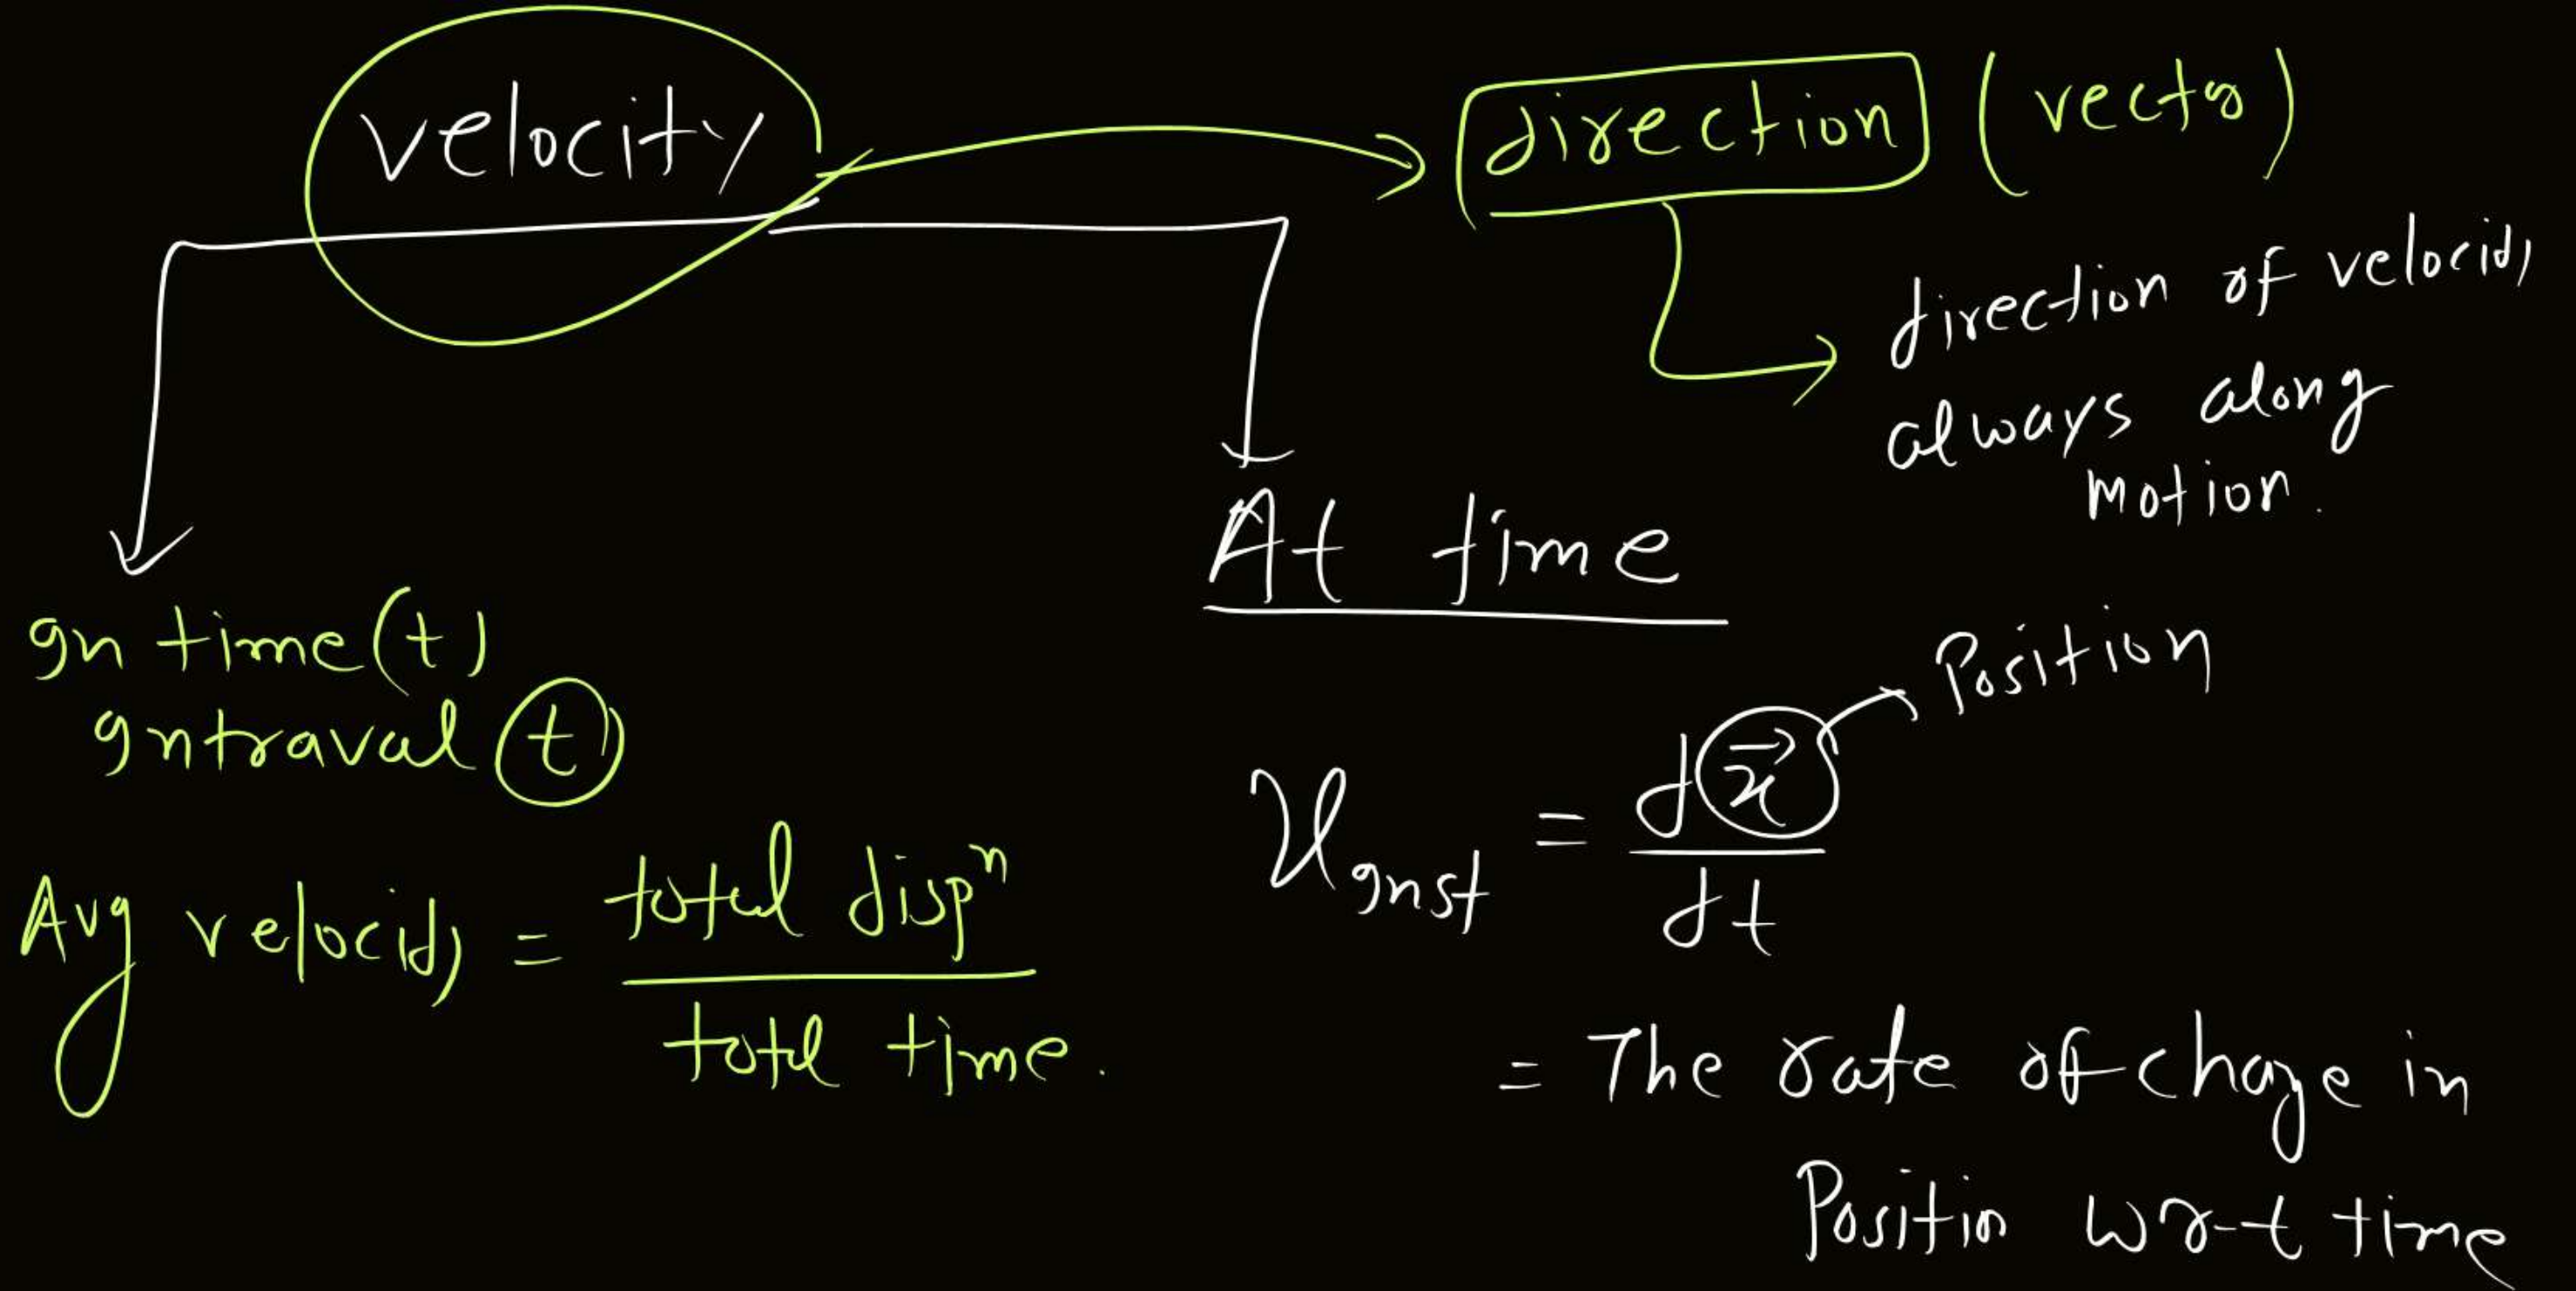 velocity
direction (vector)
direction of velocity
always along
motion.
In time (t)
Intraval t
Avg velocity = total dispⁿ / total time.
At time
Position
v Inst = dx⃗ / dt
= The rate of change in
Position w.r.t time